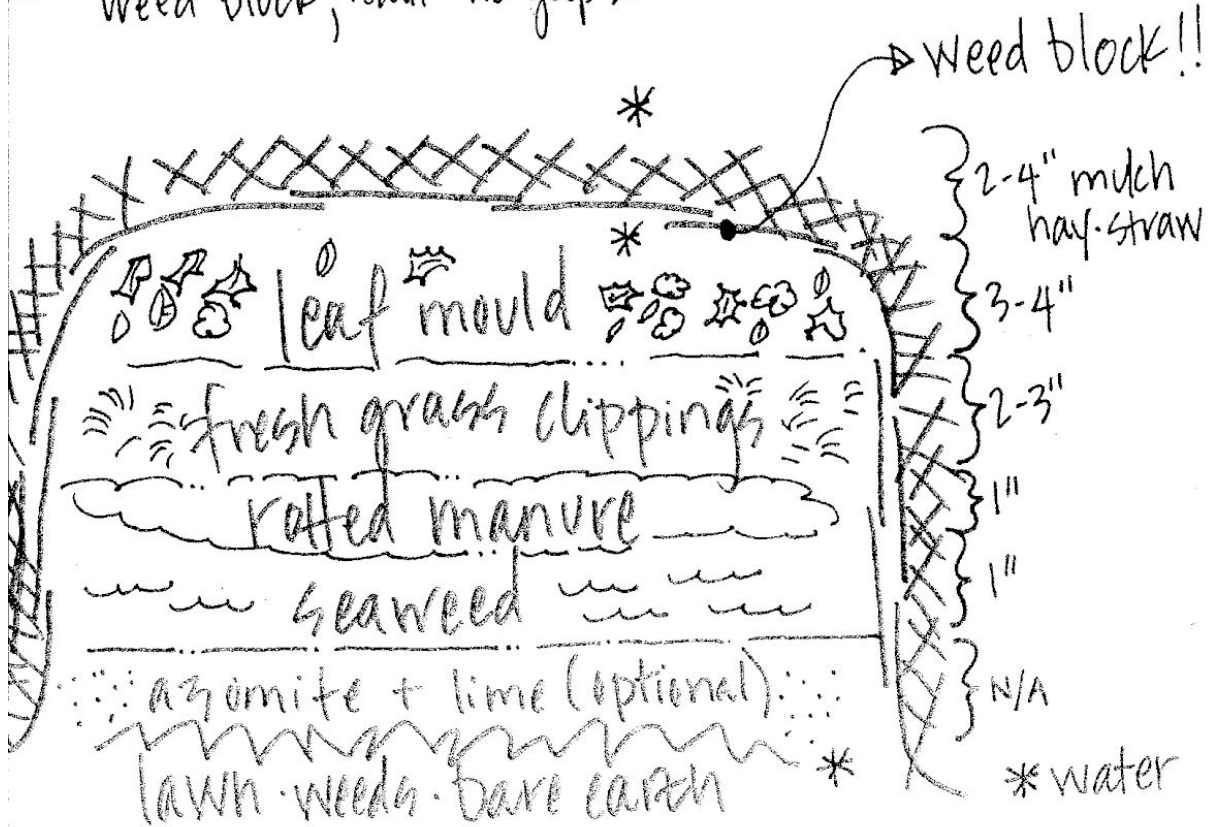 weed block,
weed block!!
2-4" mulch
hay·straw
leaf mould
3-4"
fresh grass clippings
2-3"
rotted manure
1"
seaweed
1"
azomite + lime (optional)
N/A
lawn·weeds·bare earth
* water